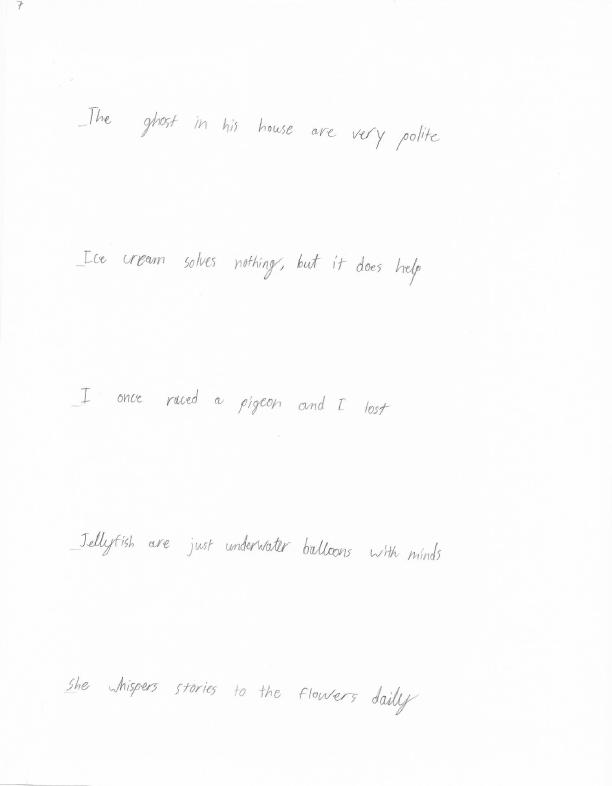 7
The ghost in his house are very polite
Ice cream solves nothing, but it does help
I once raced a pigeon and I lost
Jellyfish are just underwater balloons with minds
She whispers stories to the flowers daily